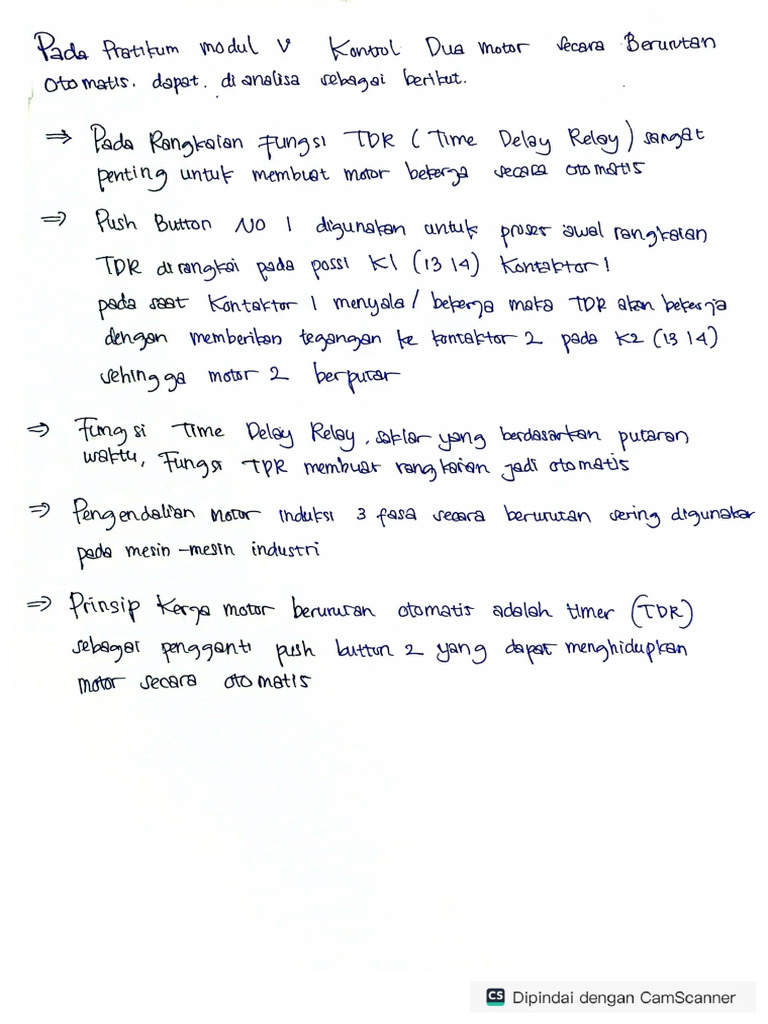 Pada Pratikum modul V Kontrol Dua motor secara Berurutan
otomatis. dapat. di analisa sebagai berikut.
⇒ Pada Rangkaian Fungsi TDR (Time Delay Relay) sangat
penting untuk membuat motor bekerja secara otomatis
⇒ Push Button NO 1 digunakan untuk proses awal rangkaian
TDR di rangkai pada possi K1 (13 14) Kontaktor 1
pada saat Kontaktor 1 menyala/bekerja maka TDR akan bekerja
dengan memberikan tegangan ke kontaktor 2 pada K2 (13 14)
sehingga motor 2 berputar
⇒ Fungsi Time Delay Relay, saklar yang berdasarkan putaran
waktu, Fungsi TPR membuat rangkaian jadi otomatis
⇒ Pengendalian motor induksi 3 fasa secara berurutan sering digunakan
pada mesin-mesin industri
⇒ Prinsip Kerja motor berurutan otomatis adalah timer (TDR)
sebagai pengganti push button 2 yang dapat menghidupkan
motor secara otomatis
CS Dipindai dengan CamScanner